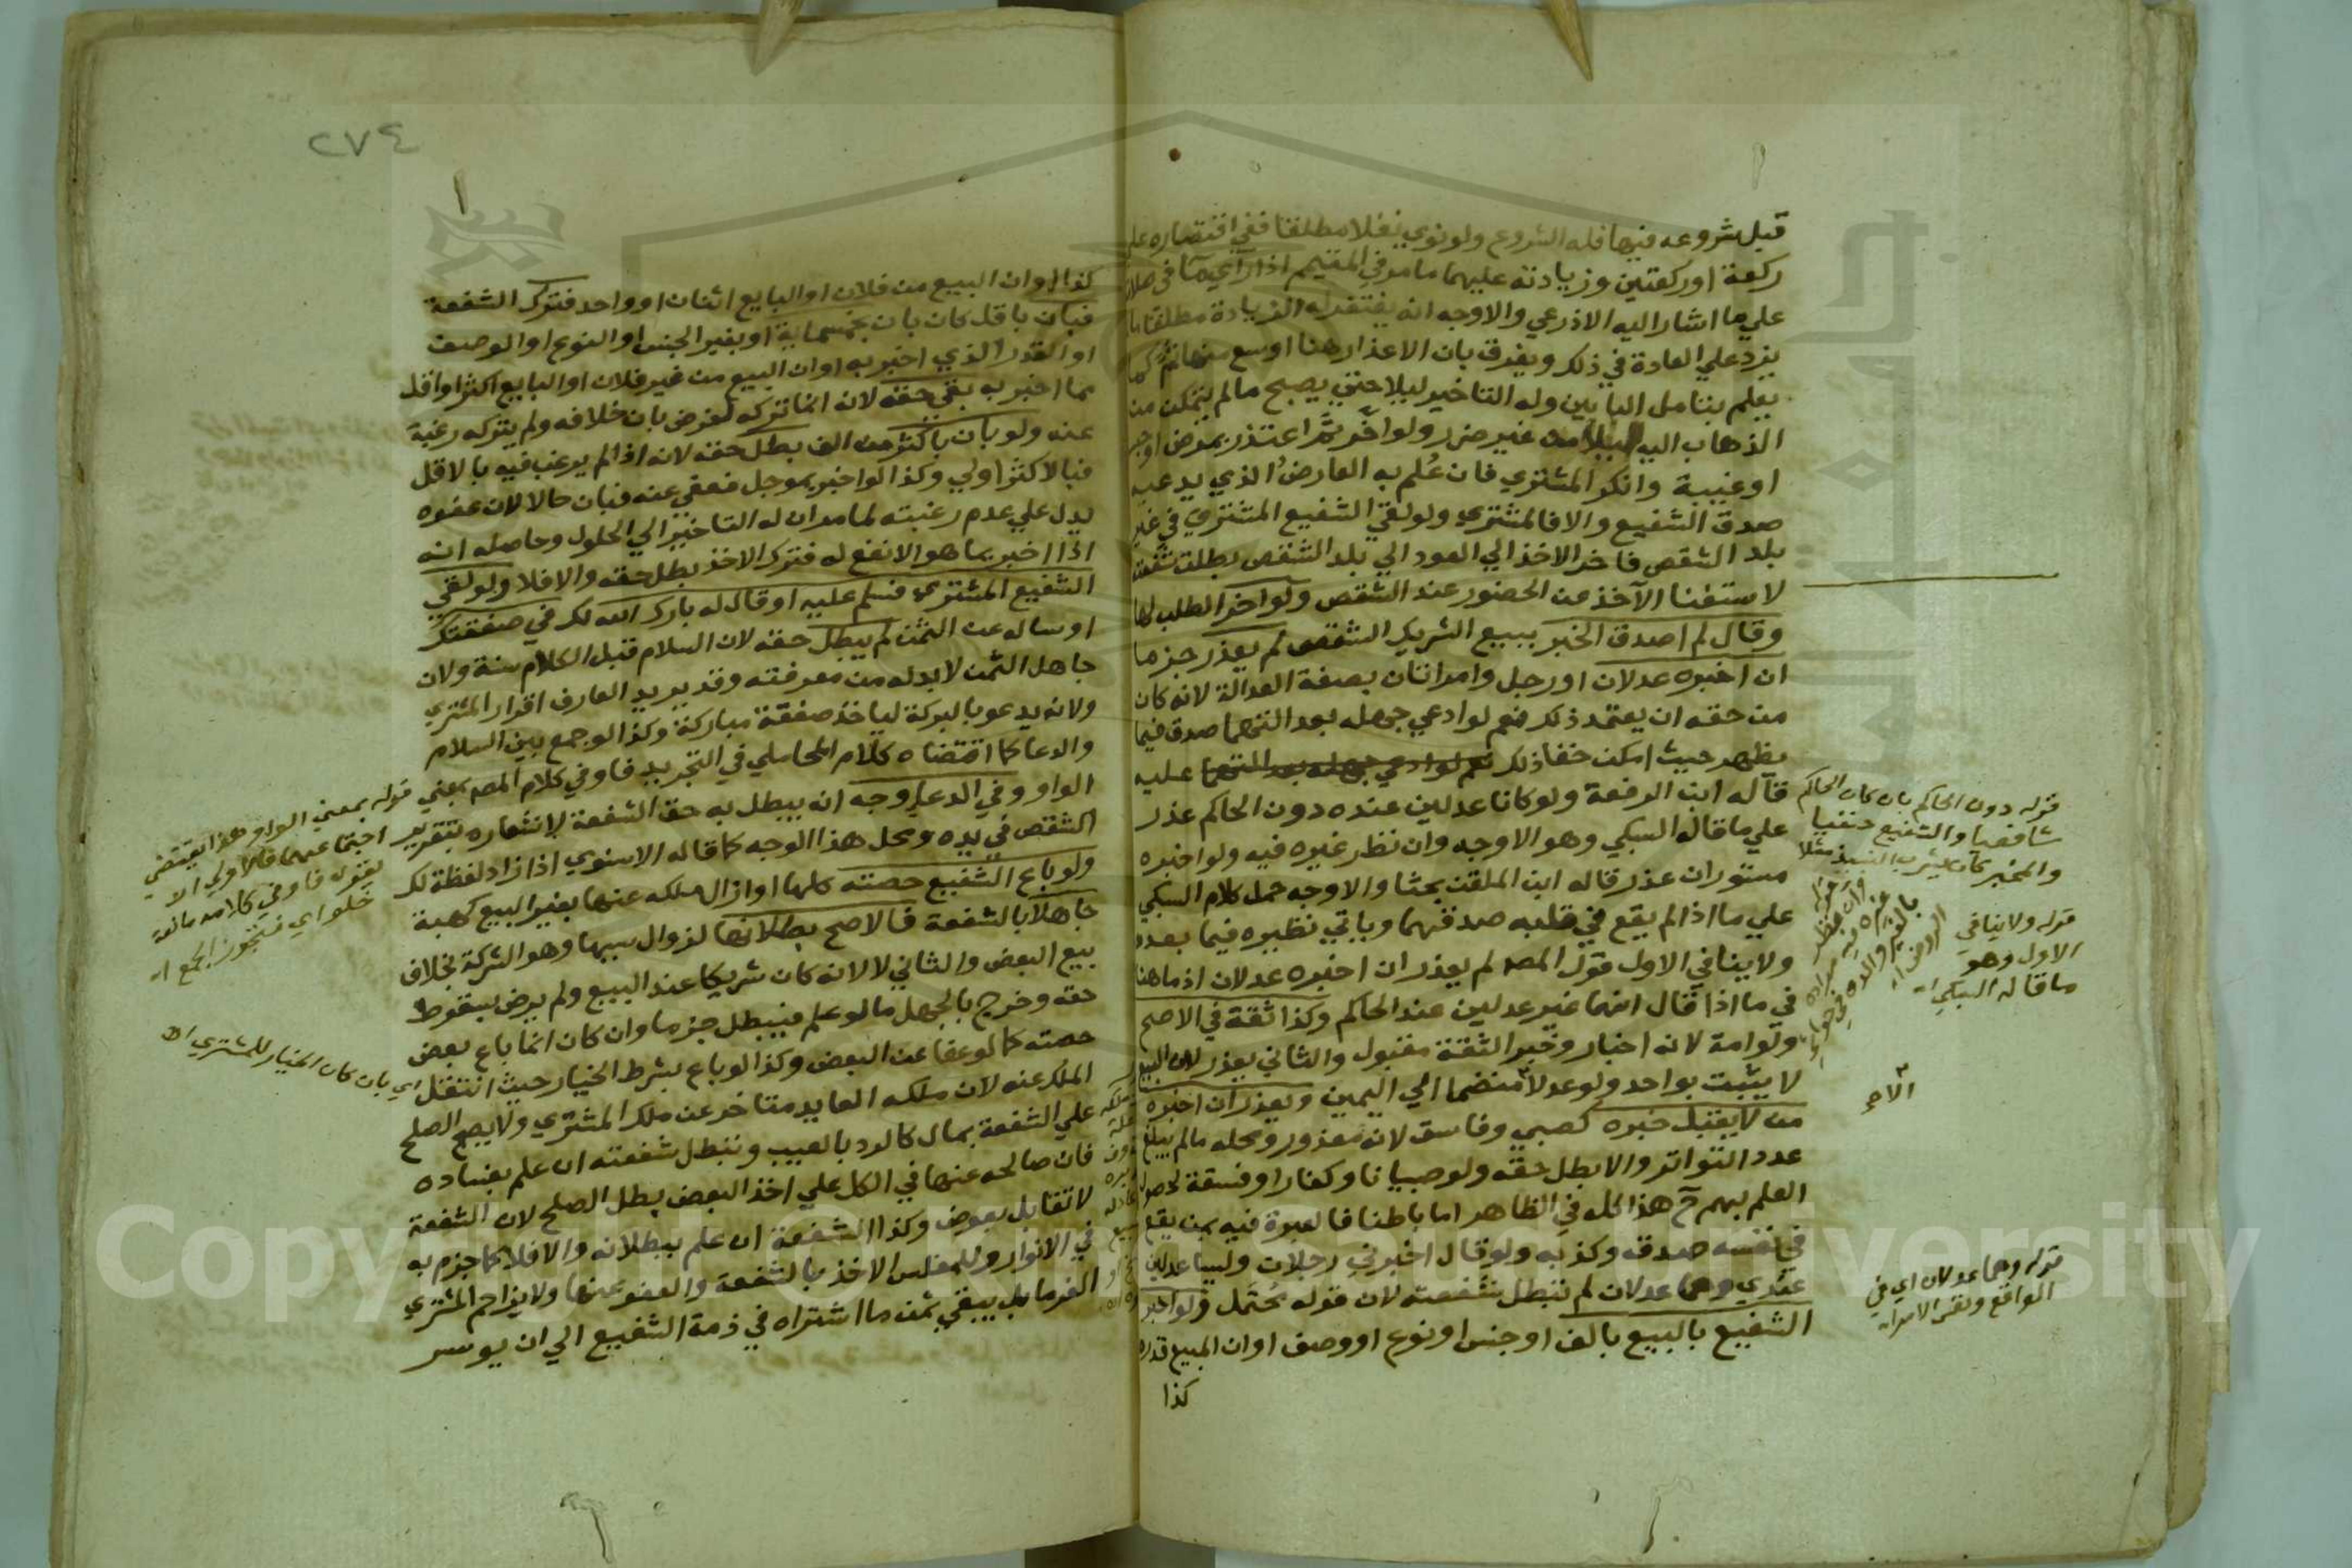 قبل شروعه فيها فله الشروع ولو نوي نفلا مطلقا ففي اقتصاره علي
ركعة او ركعتين وزيادته عليهما ما مر في المتيمم اذا راي ما في صلاته
علي ما اشار اليه الاذرعي والاوجه انه يغتفر له الزيادة مطلقا ما لم
يزد علي العادة في ذلك ويفرق بان الاعذار هنا اوسع منها ثم كما
يعلم بتامل البابين وله التاخير ليلا حتي يصبح ما لم يتمكن من
الذهاب اليه ليلا من غير ضرر ولو اخر ثم اعتذر بمرض او حبس
او غيبة وانكر المشتري فان علم به العارض الذي يدعيه
صدق الشفيع والا فالمشتري ولو لقي الشفيع المشتري في غير
بلد الشقص فاخر الاخذ الي العود الي بلد الشقص بطلت شفعته
لاستغنا الآخذ عن الحضور عند الشقص ولو اخر الطلب لها
وقال لم اصدق الخبر ببيع الشريك الشقص لم يعذر جزما
ان اخبره عدلان او رجل وامراتان بصفة العدالة لانه كان
من حقه ان يعتمد ذلك نعم لو ادعي جهله بعدالتهما صدق فيما
يظهر حيث امكن خفا ذلك نعم لو ادعي جهله بعدالتهما عليه
قاله ابن الرفعة ولو كانا عدلين عنده دون الحاكم عذر
علي ما قاله السبكي وهو الاوجه وان نظر غيره فيه ولو اخبره
مستوران عذر قاله ابن الملقن بحثا والاوجه حمل كلام السبكي
علي ما اذا لم يقع في قلبه صدقهما وياتي نظيره فيما بعده
ولا ينافي الاول قول المصـ لم يعذر ان اخبره عدلان اذ ما هنا
في ما اذا قال انهما غير عدلين عند الحاكم وكذا ثقة في الاصح
ولو امة لانه اخبار وخبر الثقة مقبول والثاني يعذر لان البيع
لا يثبت بواحد ولو عدلا منضما الي اليمين ويعذر ان اخبره
من لا يقبل خبره كصبي وفاسق لانه معذور ومحله ما لم يبلغ
عدد التواتر والا بطل حقه ولو صبيانا وكفارا وفسقة لحصول
العلم بهم ح هذا كله في الظاهر اما باطنا فالعبرة فيه بمن يقع
في نفسه صدقه وكذبه ولو قال اخبرني رجلان وليسا عدلين
عندي وهما عدلان لم تبطل شفعته لان قوله محتمل ولو اخبر
الشفيع بالبيع بالف او جنس او نوع او وصف او ان المبيع قدره
كذا
قوله دون الحاكم بان كان الحاكم
شافعيا والشفيع حنفيا
والمخبر كان يشرب النبيذ مثلا
قوله ولا ينافي
الاول وهو
ما قاله السبكي اه
قوله وهما عدلان اي في
الواقع ونفس الامر اه
٢٧٤
كذا او ان البيع من فلان او البايع اثنان او واحد فترك الشفعة
فبان باقل كان بان بخمسماية او بغير الجنس او النوع او الوصف
او القدر الذي اخبر به او ان البيع من غير فلان او البايع اكثر او اقل
مما اخبر به بقي حقه لانه انما تركه لغرض بان خلافه ولم يتركه رغبة
عنه ولو بان باكثر من الف بطل حقه لانه اذا لم يرغب فيه بالاقل
فبالاكثر اولي وكذا لو اخبر بموجل فعفي عنه فبان حالا لان عفوه
يدل علي عدم رغبته لما مر ان له التاخير الي الحلول وحاصله انه
اذا اخبر بما هو الانفع له فترك الاخذ بطل حقه والا فلا ولو لقي
الشفيع المشتري فسلم عليه او قال له بارك الله لك في صفقتك
او ساله عن الثمن لم يبطل حقه لان السلام قبل الكلام سنة ولان
جاهل الثمن لا بد له من معرفته وقد يريد العارف اقرار المشتري
ولانه يدعو بالبركة لياخذ صفقة مباركة وكذا لو جمع بين السلام
والدعا كما اقتضاه كلام المحاملي في التجريد فاو في كلام المصـ بمعني
الواو وفي الدعا وجه انه يبطل به حق الشفعة لاشعاره بتقرير
الشقص في يده ومحل هذا الوجه كما قاله الاسنوي اذا زاد لفظة لك
ولو باع الشفيع حصته كلها او ازال ملكه عنها بغير البيع كهبة
جاهلا بالشفعة فالاصح بطلانها لزوال سببها وهو الشركة بخلاف
بيع البعض والثاني لا لانه كان شريكا عند البيع ولم يرض بسقوط
حقه وخرج بالجهل ما لو علم فيبطل جزما وان كان انما باع بعض
حصته كما لو عفا عن البعض وكذا لو باع بشرط الخيار حيث انتقل
الملك عنه لان ملكه العايد متاخر عن ملك المشتري ولا يصح الصلح
علي الشفعة بمال كالرد بالعيب وتبطل شفعته ان علم بفساده
فان صالحه عنها في الكل علي اخذ البعض بطل الصلح لان الشفعة
لا تقابل بعوض وكذا الشفعة ان علم ببطلانه والا فلا كما جزم به
في الانوار وللمفلس الاخذ بالشفعة والعفو عنها ولا يزاحم المشتري
الغرما بل يبقي ثمن ما اشتراه في ذمة الشفيع الي ان يوسر
قوله بمعني الواو هذا يقتضي
اجتماعهما فالاولي ان لا
يقوله فاو في كلامه مانعة
خلو اي فتجوز الجمع اه
اي بان كان الخيار للمشتري اه